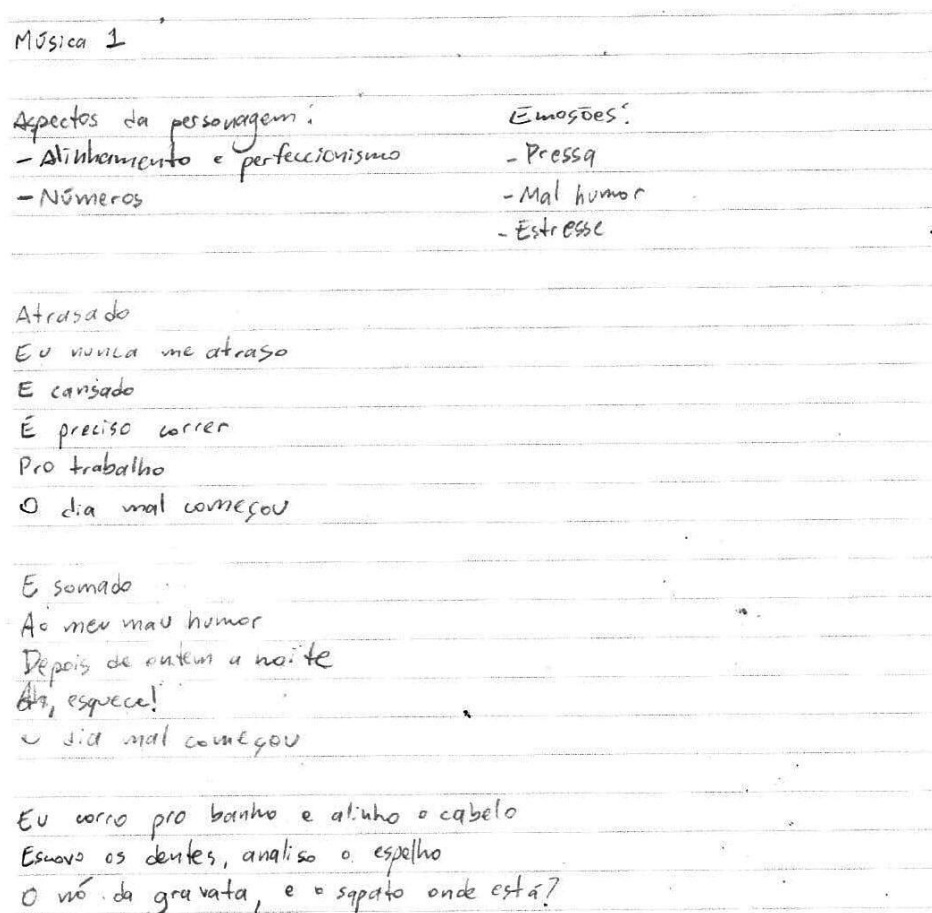 Música 1
Aspectos da personagem:
- Alinhamento e perfeccionismo
- Números
Emoções:
- Pressa
- Mal humor
- Estresse
Atrasado
Eu nunca me atraso
E cansado
É preciso correr
Pro trabalho
O dia mal começou
E somado
Ao meu mau humor
Depois de ontem a noite
Ah, esquece!
O dia mal começou
Eu corro pro banho e alinho o cabelo
Escovo os dentes, analiso o espelho
O nó da gravata, e o sapato onde está?